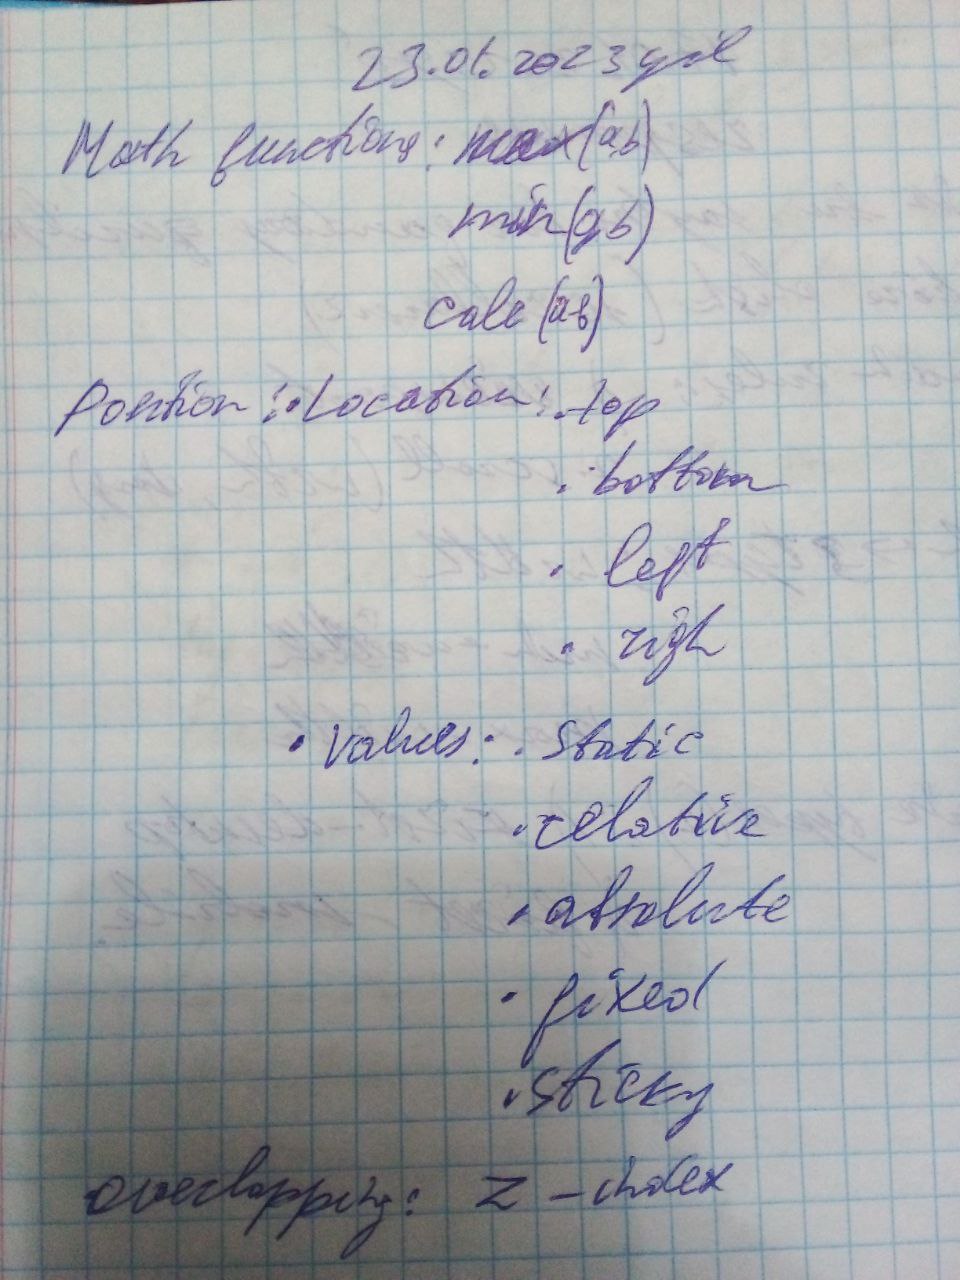 23.01.2023 yil
Math functions: max(a,b)
min(a,b)
calc(a-b)
Position: • Location: • top
• bottom
• left
• righ
• values: • static
• relative
• absolute
• fixed
• sticky
overlapping: z-index